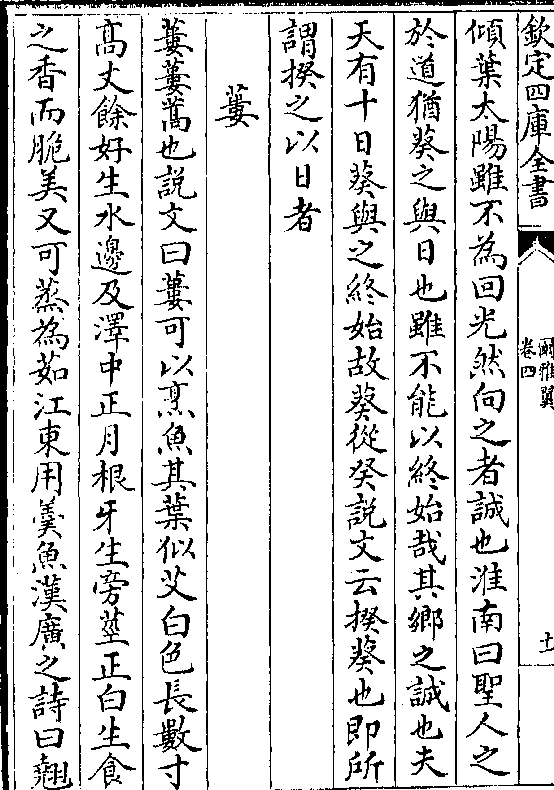 欽定四庫全書
爾雅翼
卷四
十
傾葉太陽雖不為回光然向之者誠也淮南曰聖人之
於道猶葵之與日也雖不能以終始哉其鄉之誠也夫
天有十日葵與之終始故葵從癸說文云揆葵也即所
謂揆之以日者
蔞
蔞蔞蒿也說文曰蔞可以烹魚其葉似艾白色長數寸
高丈餘好生水邊及澤中正月根牙生旁莖正白生食
之香而脆美又可蒸為茹江東用羹魚漢廣之詩曰翹